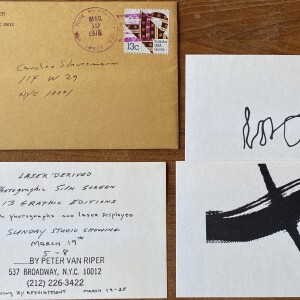 MAR
10
1978
13c
USA
Carolee Schneemann
114 W 29
NYC 10001
LASER DERIVED
Photographic Silk Screen
13 GRAPHIC EDITIONS
photographs and laser displayed
SUNDAY STUDIO SHOWING
MARCH 19th
5-8
BY PETER VAN RIPER
537 BROADWAY, N.Y.C. 10012
(212) 226-3422
BY APPOINTMENT MARCH 19-25